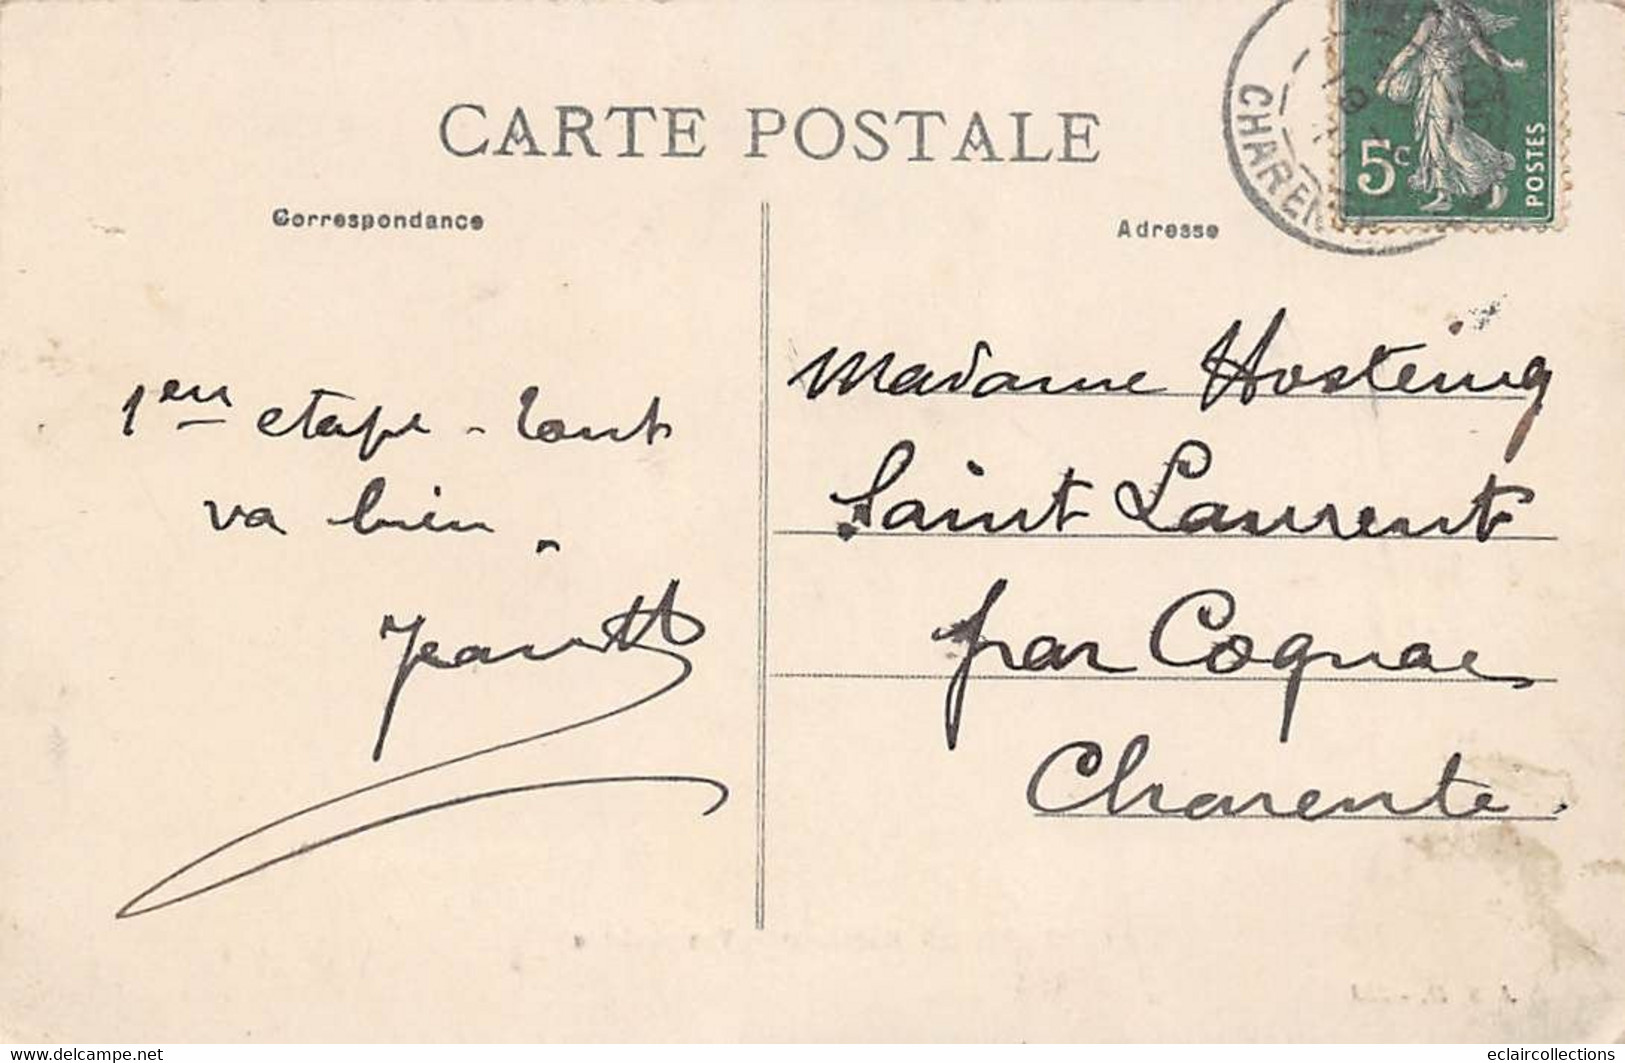 CARTE POSTALE
Correspondance
Adresse
CHARENTE
5c
POSTES
1ere etape - tout
va bien.
Jeanne
Madame Hosteing
Saint Laurent
par Cognac
Charente.
www.delcampe.net
eclaircollections